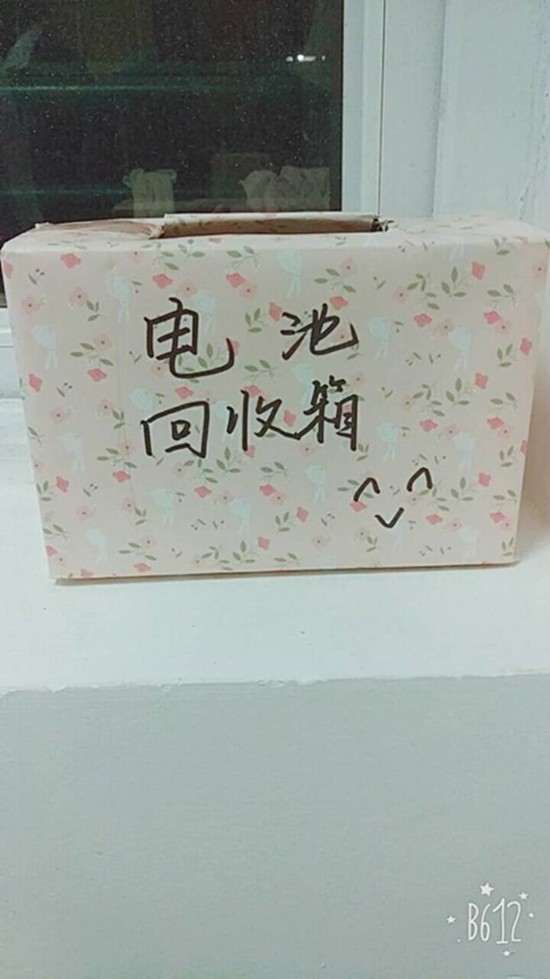 电池
回收箱
B612